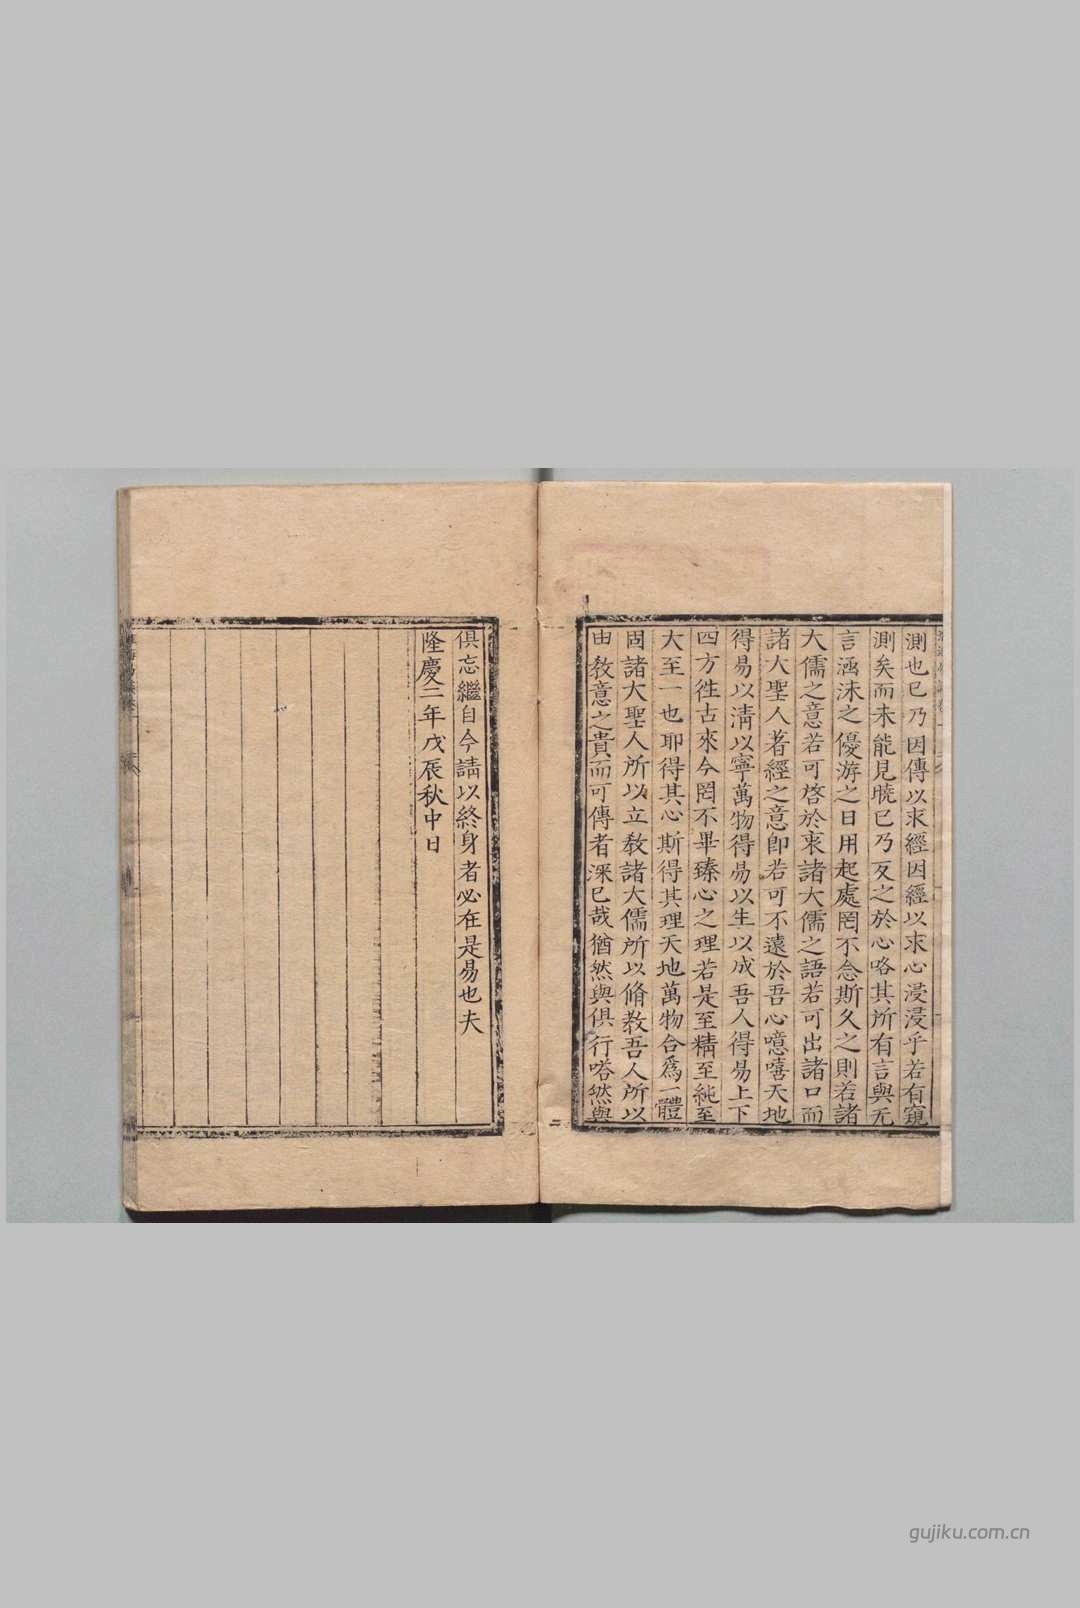 測也已乃因傳以求經因經以求心浸浸乎若有窺
測矣而未能見曉已乃反之於心咯其所有言與无
言涵沫之優游之日用起處罔不念斯久之則若諸
大儒之意若可啓於衷諸大儒之語若可出諸口而
諸大聖人著經之意即若可不遠於吾心噫嘻天地
得易以清以寧萬物得易以生以成吾人得易上下
四方徃古來今罔不畢臻心之理若是至精至純至
大至一也耶得其心斯得其理天地萬物合爲一體
固諸大聖人所以立教諸大儒所以脩教吾人所以
由教意之貴而可傳者深已哉猶然與俱行嗒然與
俱忘繼自今請以終身者必在是易也夫
隆慶二年戊辰秋中日
gujiku.com.cn